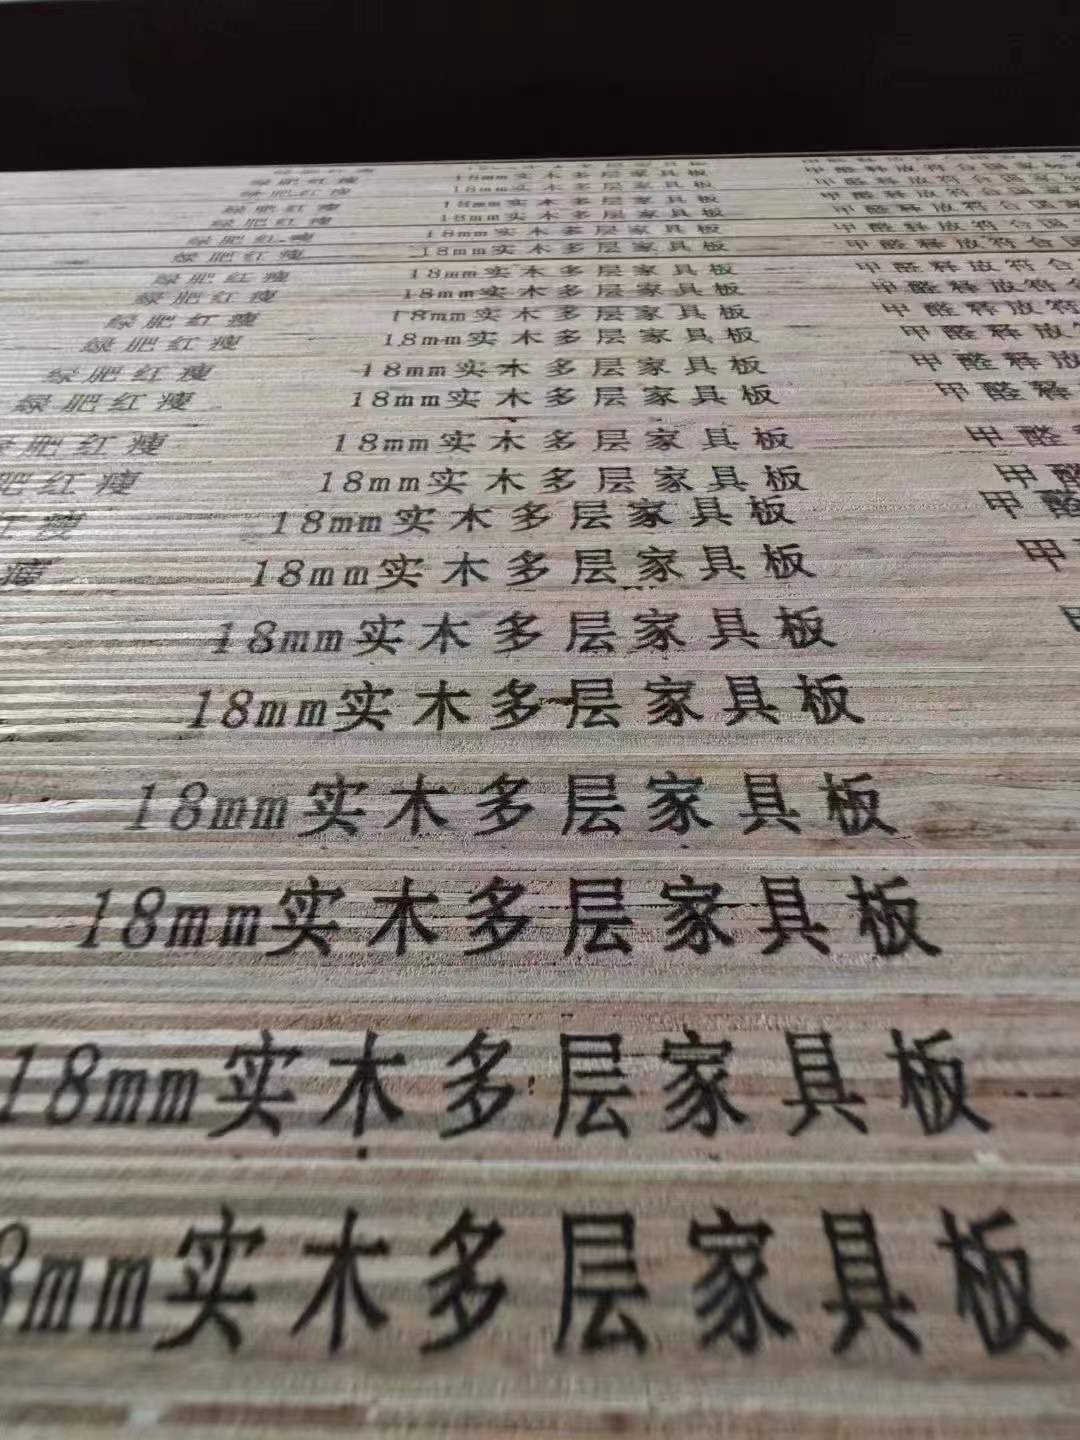 绿肥红瘦 18mm实木多层家具板 甲醛释放符合国家标
绿肥红瘦 18mm实木多层家具板 甲醛释放符合国家
绿肥红瘦 18mm实木多层家具板 甲醛释放符合国家
绿肥红瘦 18mm实木多层家具板 甲醛释放符合国
绿肥红瘦 18mm实木多层家具板 甲醛释放符合国
绿肥红瘦 18mm实木多层家具板 甲醛释放符合国
绿肥红瘦 18mm实木多层家具板 甲醛释放符合
绿肥红瘦 18mm实木多层家具板 甲醛释放符合
绿肥红瘦 18mm实木多层家具板 甲醛释放符
绿肥红瘦 18mm实木多层家具板 甲醛释放
绿肥红瘦 18mm实木多层家具板 甲醛释放
绿肥红瘦 18mm实木多层家具板 甲醛释
绿肥红瘦 18mm实木多层家具板 甲醛
肥红瘦 18mm实木多层家具板 甲醛
红瘦 18mm实木多层家具板 甲醛
瘦 18mm实木多层家具板 甲
18mm实木多层家具板
18mm实木多层家具板
18mm实木多层家具板
18mm实木多层家具板
18mm实木多层家具板
8mm实木多层家具板